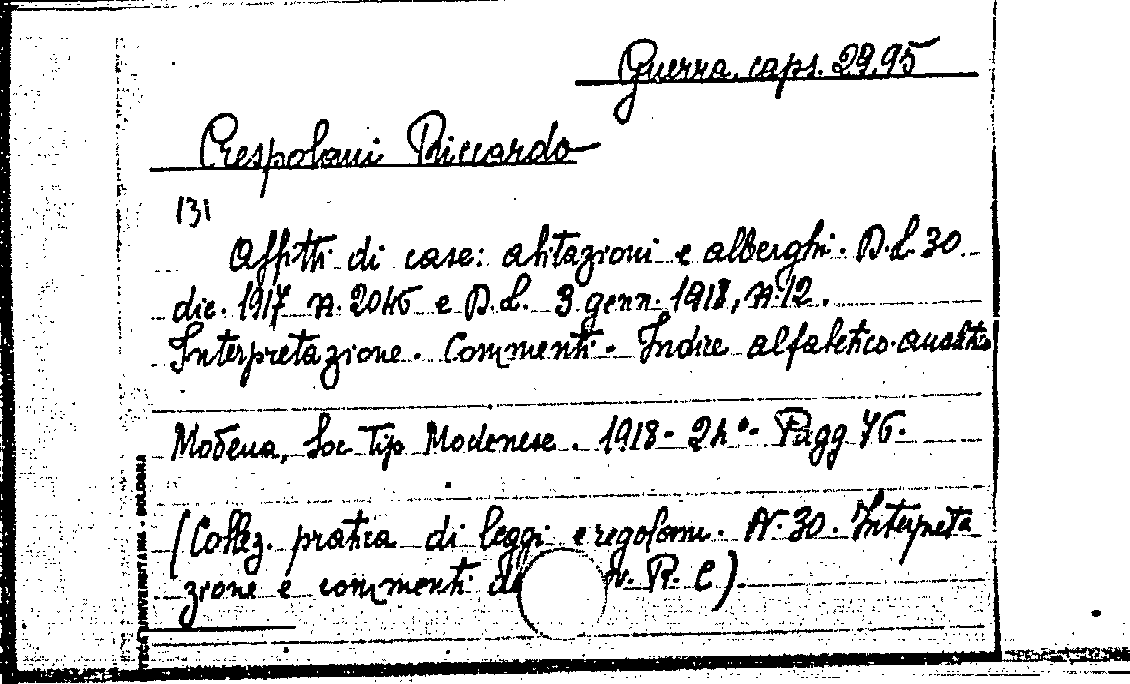 Guerra, caps. 29.95
Crespolani Riccardo
131
Affitti di case: abitazioni e alberghi. D.L. 30
dic. 1917 n. 2046 e D.L. 3 genn. 1918, n. 12.
Interpretazione. Commenti. Indice alfabetico-analitico
Modena, Soc Tip Modenese. 1918 - 24° - Pagg 76.
(Collez. pratica di leggi e regolam. N. 30. Interpreta
zione e commenti v. R. C).
TECA UNIVERSITARIA - BOLOGNA